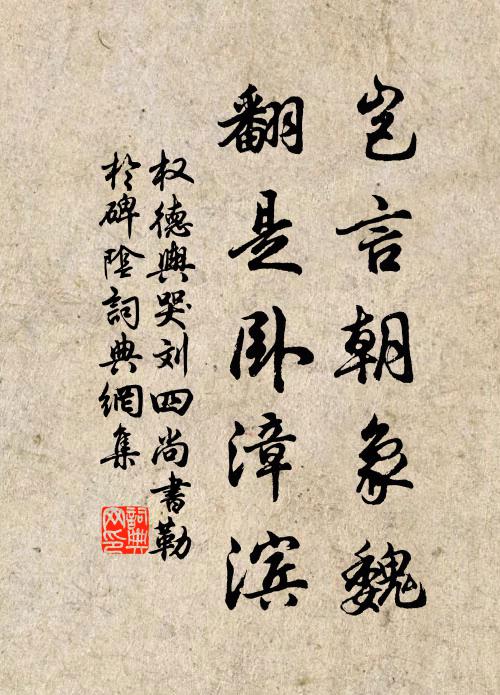 岂言朝象魏
翻是卧漳滨
权德舆哭刘四尚书勒
於碑陰詞典網集
詞典
网印